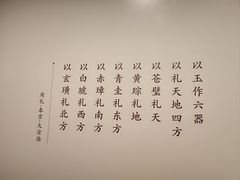 以玉作六器
以礼天地四方
以苍璧礼天
以黄琮礼地
以青圭礼东方
以赤璋礼南方
以白琥礼西方
以玄璜礼北方
周礼·春官·大宗伯